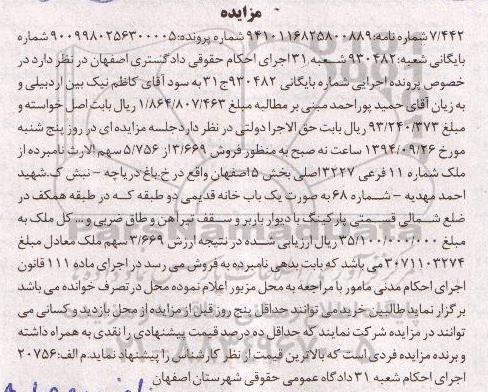 مزایده
۷/۴۴۲ شماره نامه: ۹۴۱۰۱۱۶۸۲۵۸۰۰۸۸۹ شماره پرونده: ۹۰۰۹۹۸۰۲۵۶۳۰۰۰۰۵ شماره
بایگانی شعبه: ۹۳۰۴۸۲ شعبه ۳۱ اجرای احکام حقوقی دادگستری اصفهان در نظر دارد در
خصوص پرونده اجرایی شماره بایگانی ۹۳۰۴۸۲ ج۳۱ به سود آقای کاظم نیک بین اردبیلی و
به زیان آقای حمید پوراحمد مبنی بر مطالبه مبلغ ۱/۸۶۴/۸۰۷/۴۶۳ ریال بابت اصل خواسته و
مبلغ ۹۳/۲۴۰/۳۷۳ ریال بابت حق الاجرا دولتی در نظر دارد جلسه مزایده ای در روز پنج شنبه
مورخ ۱۳۹۴/۰۹/۲۶ ساعت نه صبح به منظور فروش ۳/۶۶۹ از ۵/۷۵۶ سهم الارث نامبرده از
ملک شماره ۱۱ فرعی ۳۲۲۷ اصلی بخش ۵ اصفهان واقع در خ.باغ دریاچه - نبش ک.شهید
احمد مهدیه - شماره ۶۸ به صورت یک باب خانه قدیمی دو طبقه که در طبقه همکف در
ضلع شمالی قسمتی پارکینگ با دیوار باربر و سقف تیرآهن و طاق ضربی و - کل ملک به
مبلغ ۳۵/۱۰۰/۰۰۰/۰۰۰ ریال ارزیابی شده در نتیجه ارزش ۳/۶۶۹ سهم ملک معادل مبلغ
۳۰۷۱۱۰۳۲۷۴ می باشد که بابت بدهی نامبرده به فروش می رسد در اجرای ماده ۱۱۱ قانون
اجرای احکام مدنی مامور با مراجعه به محل مزبور اعلام نموده محل در تصرف خوانده می باشد
برگزار نماید طالبین خرید می توانند حداقل پنج روز قبل از مزایده از محل بازدید و کسانی می
توانند در مزایده شرکت نمایند که حداقل ده درصد قیمت پیشنهادی را نقدی به همراه داشته
و برنده مزایده فردی است که بالاترین قیمت از نظر کارشناس را پیشنهاد نماید. م الف: ۲۰۷۵۶
اجرای احکام شعبه ۳۱ دادگاه عمومی حقوقی شهرستان اصفهان